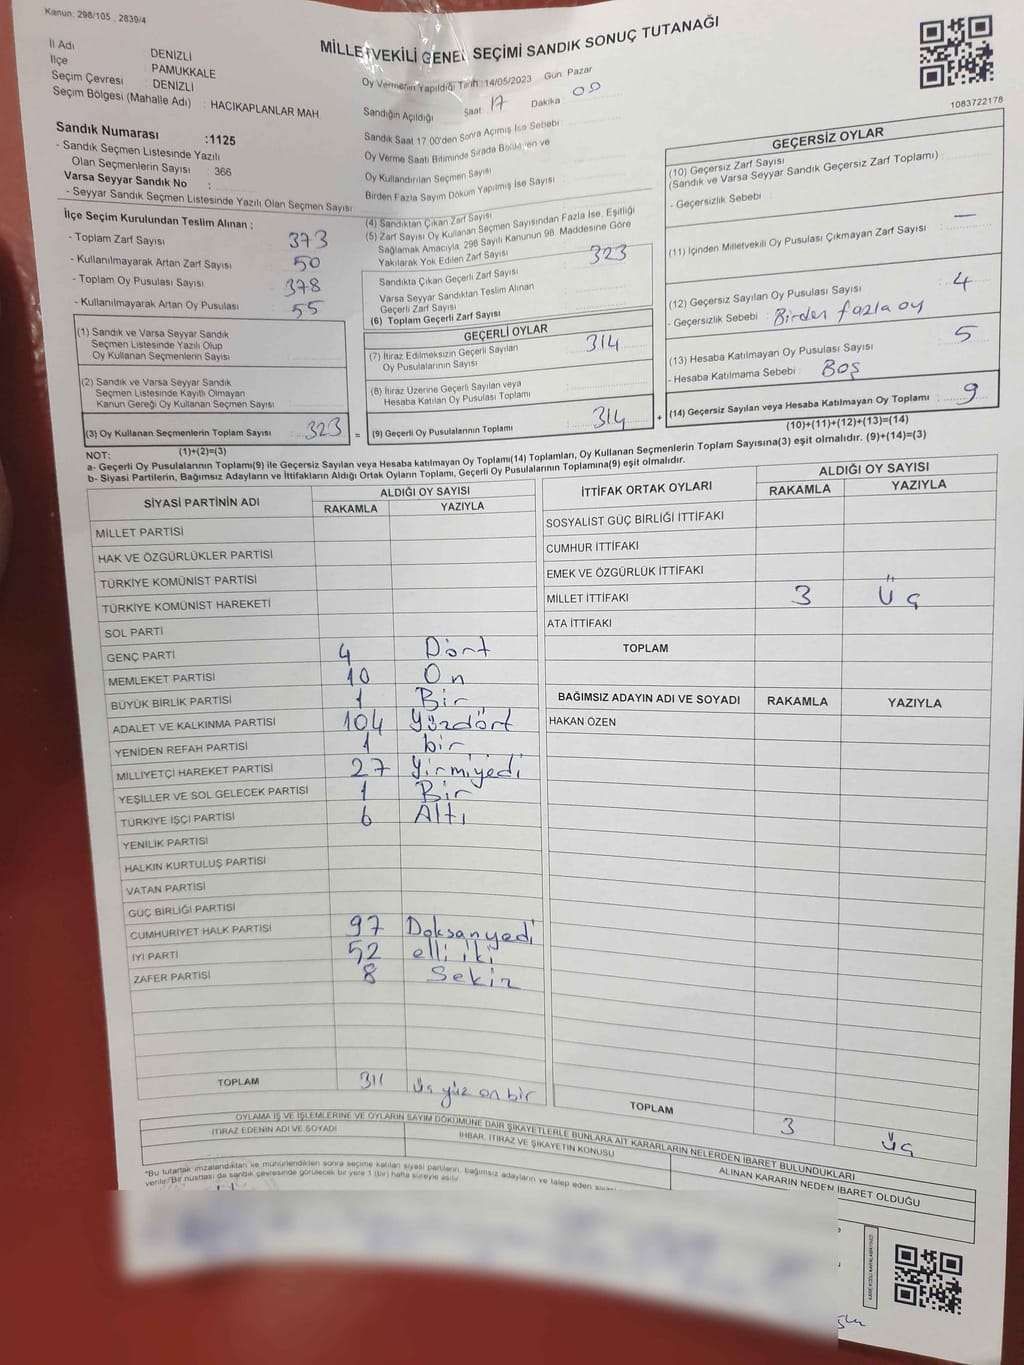 Kanun: 298/105 . 2839/4
MİLLETVEKİLİ GENEL SEÇİMİ SANDIK SONUÇ TUTANAĞI
1083722178
İl Adı : DENİZLİ
İlçe : PAMUKKALE
Seçim Çevresi : DENİZLİ
Seçim Bölgesi (Mahalle Adı) : HACIKAPLANLAR MAH
Sandık Numarası :1125
- Sandık Seçmen Listesinde Yazılı
Olan Seçmenlerin Sayısı : 366
Varsa Seyyar Sandık No :
- Seyyar Sandık Seçmen Listesinde Yazılı Olan Seçmen Sayısı
Oy Vermenin Yapıldığı Tarih :14/05/2023 Gün: Pazar
Sandığın Açıldığı Saat 17 Dakika 00
Sandık Saat 17:00'den Sonra Açılmış İse Sebebi :
Oy Verme Saati Bitiminde Sırada Bekleyen ve
Oy Kullandırılan Seçmen Sayısı
Birden Fazla Sayım Döküm Yapılmış İse Sayısı
İlçe Seçim Kurulundan Teslim Alınan ;
- Toplam Zarf Sayısı : 373
- Kullanılmayarak Artan Zarf Sayısı : 50
- Toplam Oy Pusulası Sayısı : 378
- Kullanılmayarak Artan Oy Pusulası : 55
(1) Sandık ve Varsa Seyyar Sandık
Seçmen Listesinde Yazılı Olup
Oy Kullanan Seçmenlerin Sayısı :
(2) Sandık ve Varsa Seyyar Sandık
Seçmen Listesinde Kayıtlı Olmayan
Kanun Gereği Oy Kullanan Seçmen Sayısı :
(3) Oy Kullanan Seçmenlerin Toplam Sayısı : 323
(1)+(2)=(3)
(4) Sandıktan Çıkan Zarf Sayısı
(5) Zarf Sayısı Oy Kullanan Seçmen Sayısından Fazla İse, Eşitliği
Sağlamak Amacıyla, 298 Sayılı Kanunun 98. Maddesine Göre
Yakılarak Yok Edilen Zarf Sayısı
323
Sandıkta Çıkan Geçerli Zarf Sayısı
Varsa Seyyar Sandıktan Teslim Alınan
Geçerli Zarf Sayısı
(6) Toplam Geçerli Zarf Sayısı
GEÇERLİ OYLAR
(7) İtiraz Edilmeksizin Geçerli Sayılan
Oy Pusulalarının Sayısı : 314
(8) İtiraz Üzerine Geçerli Sayılan veya
Hesaba Katılan Oy Pusulası Toplamı
= (9) Geçerli Oy Pusulalarının Toplamı : 314 +
GEÇERSİZ OYLAR
(10) Geçersiz Zarf Sayısı
(Sandık ve Varsa Seyyar Sandık Geçersiz Zarf Toplamı) :
- Geçersizlik Sebebi :
(11) İçinden Milletvekili Oy Pusulası Çıkmayan Zarf Sayısı : —
(12) Geçersiz Sayılan Oy Pusulası Sayısı : 4
- Geçersizlik Sebebi : Birden fazla oy
(13) Hesaba Katılmayan Oy Pusulası Sayısı : 5
- Hesaba Katılmama Sebebi : Boş
(14) Geçersiz Sayılan veya Hesaba Katılmayan Oy Toplamı : 9
(10)+(11)+(12)+(13)=(14)
NOT:
a- Geçerli Oy Pusulalarının Toplamı(9) ile Geçersiz Sayılan veya Hesaba katılmayan Oy Toplamı(14) Toplamları, Oy Kullanan Seçmenlerin Toplam Sayısına(3) eşit olmalıdır. (9)+(14)=(3)
b- Siyasi Partilerin, Bağımsız Adayların ve İttifakların Aldığı Ortak Oyların Toplamı, Geçerli Oy Pusulalarının Toplamına(9) eşit olmalıdır.
SİYASİ PARTİNİN ADI ALDIĞI OY SAYISI
RAKAMLA YAZIYLA
MİLLET PARTİSİ
HAK VE ÖZGÜRLÜKLER PARTİSİ
TÜRKİYE KOMÜNİST PARTİSİ
TÜRKİYE KOMÜNİST HAREKETİ
SOL PARTİ
GENÇ PARTİ 4 Dört
MEMLEKET PARTİSİ 10 On
BÜYÜK BİRLİK PARTİSİ 1 Bir
ADALET VE KALKINMA PARTİSİ 104 Yüzdört
YENİDEN REFAH PARTİSİ 1 bir
MİLLİYETÇİ HAREKET PARTİSİ 27 Yirmiyedi
YEŞİLLER VE SOL GELECEK PARTİSİ 1 Bir
TÜRKİYE İŞÇİ PARTİSİ 6 Altı
YENİLİK PARTİSİ
HALKIN KURTULUŞ PARTİSİ
VATAN PARTİSİ
GÜÇ BİRLİĞİ PARTİSİ
CUMHURİYET HALK PARTİSİ 97 Doksanyedi
İYİ PARTİ 52 elli iki
ZAFER PARTİSİ 8 Sekiz
TOPLAM 311 üç yüz on bir
İTTİFAK ORTAK OYLARI ALDIĞI OY SAYISI
RAKAMLA YAZIYLA
SOSYALİST GÜÇ BİRLİĞİ İTTİFAKI
CUMHUR İTTİFAKI
EMEK VE ÖZGÜRLÜK İTTİFAKI
MİLLET İTTİFAKI 3 Üç
ATA İTTİFAKI
TOPLAM
BAĞIMSIZ ADAYIN ADI VE SOYADI RAKAMLA YAZIYLA
HAKAN ÖZEN
TOPLAM 3 Üç
OYLAMA İŞ VE İŞLEMLERİNE VE OYLARIN SAYIM DÖKÜMÜNE DAİR ŞİKAYETLERLE BUNLARA AİT KARARLARIN NELERDEN İBARET BULUNDUKLARI
İTİRAZ EDENİN ADI VE SOYADI
İHBAR, İTİRAZ VE ŞİKAYETİN KONUSU
ALINAN KARARIN NEDEN İBARET OLDUĞU
*Bu tutanak imzalandıktan ve mühürlendikten sonra seçime katılan siyasi partilerin, bağımsız adayların ve talep eden
verilir. Bir nüshası da sandık çevresinde görülecek bir yere 1 (bir) hafta süreyle asılır